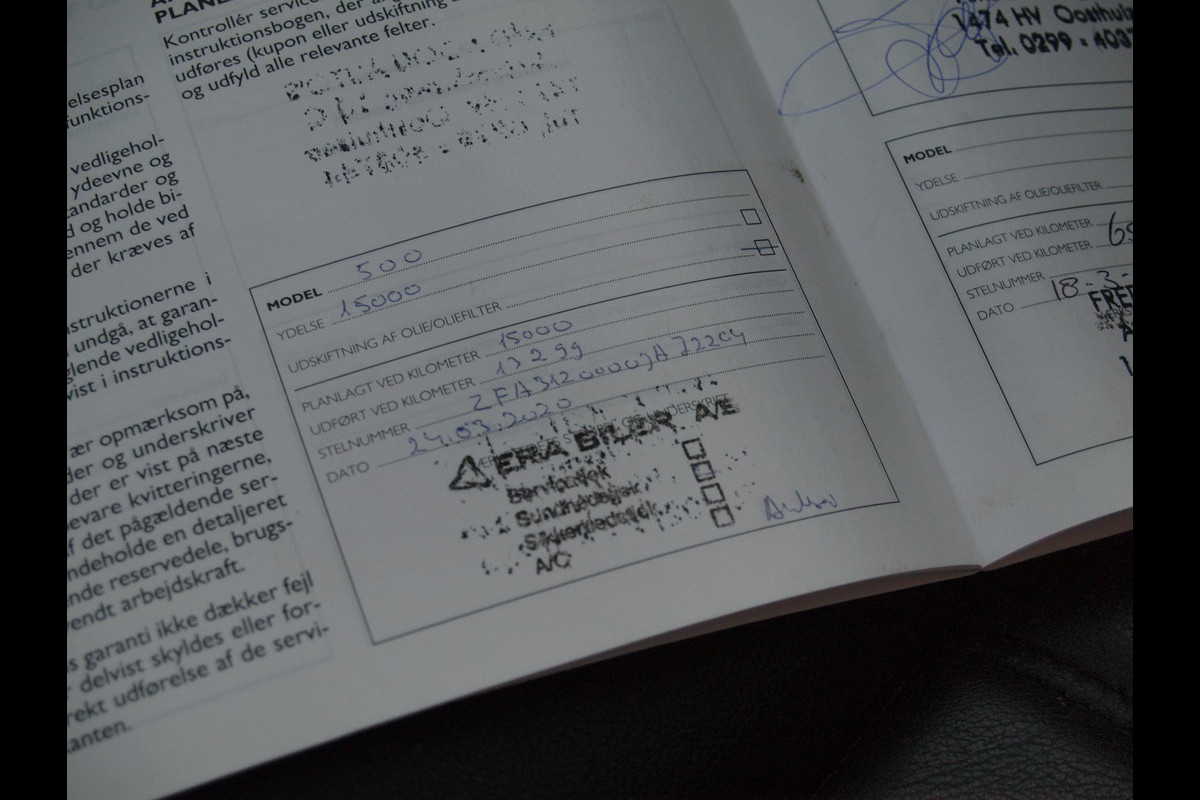 PLANE
Kontrollér servic
instruktionsbogen, der a
udføres (kupon eller udskiftning
og udfyld alle relevante felter.
elsesplan
funktions-
vedligehol-
ydeevne og
tandarder og
d og holde bi-
ennem de ved
der kræves af
nstruktionerne i
undgå, at garan-
glende vedligehol-
vist i instruktions-
ær opmærksom på,
der og underskriver
der er vist på næste
bevare kvitteringerne,
af det pågældende ser-
ndeholde en detaljeret
nde reservedele, brugs-
endt arbejdskraft.
s garanti ikke dækker fejl
delvist skyldes eller for-
rekt udførelse af de servi-
kanten.
MODEL 500
YDELSE 15000
UDSKIFTNING AF OLIE/OLIEFILTER
PLANLAGT VED KILOMETER 15000
UDFØRT VED KILOMETER 13299
STELNUMMER ZFA3120000JAJ2204
DATO 24.03.2020
ERA BILER A/S
Servicetjek
Sundhedstjek
Sikkerhedstjek
A/C
1474 HV Oosthuiz
Tel. 0299 - 403
MODEL
YDELSE
UDSKIFTNING AF OLIE/OLIEFILTER
PLANLAGT VED KILOMETER
UDFØRT VED KILOMETER
STELNUMMER
DATO 18-3-
FRE